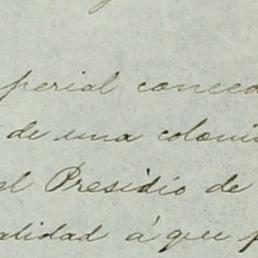 perial conced
de una coloni
el Presidio de
alidad á que p